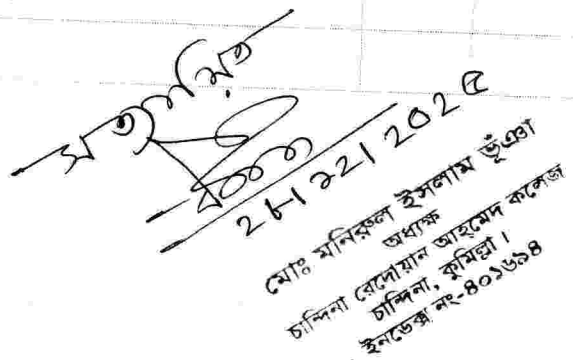 সত্যায়িত
মোঃ মনিরুল ইসলাম ভূঁঞা
অধ্যক্ষ
চান্দিনা রেদোয়ান আহমেদ কলেজ
চান্দিনা, কুমিল্লা।
ইনডেক্স নং-৪০১৬৯৪